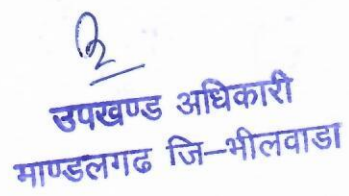 उपखण्ड अधिकारी
माण्डलगढ जि–भीलवाडा